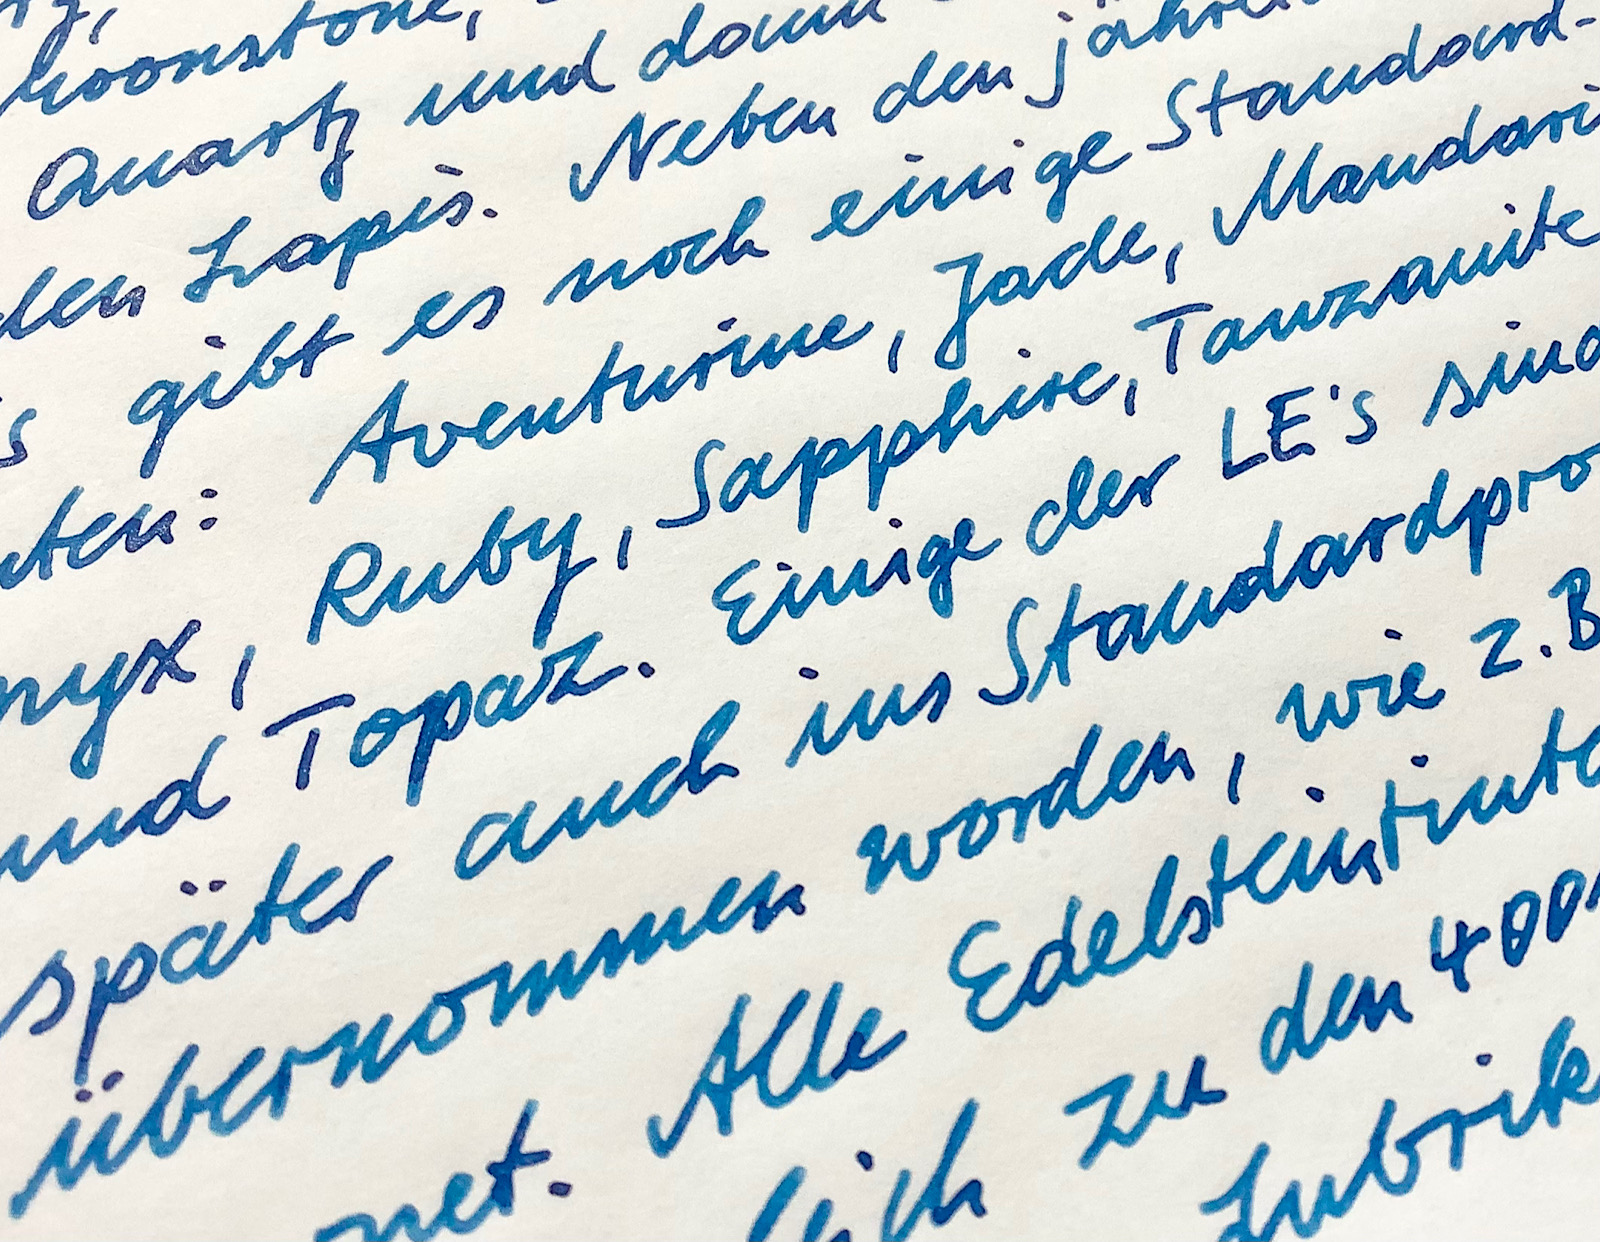 Moonstone,
Quartz und dann
den Lapis. Neben den jährli
s gibt es noch einige Standard-
nten: Aventurine, Jade, Mandari
nyx, Ruby, Sapphire, Tanzanite
und Topaz. Einige der LE's sind
später auch ins Standardpro
übernommen worden, wie z.B
net. Alle Edelsteintinte
lich zu den 400
Lubrik